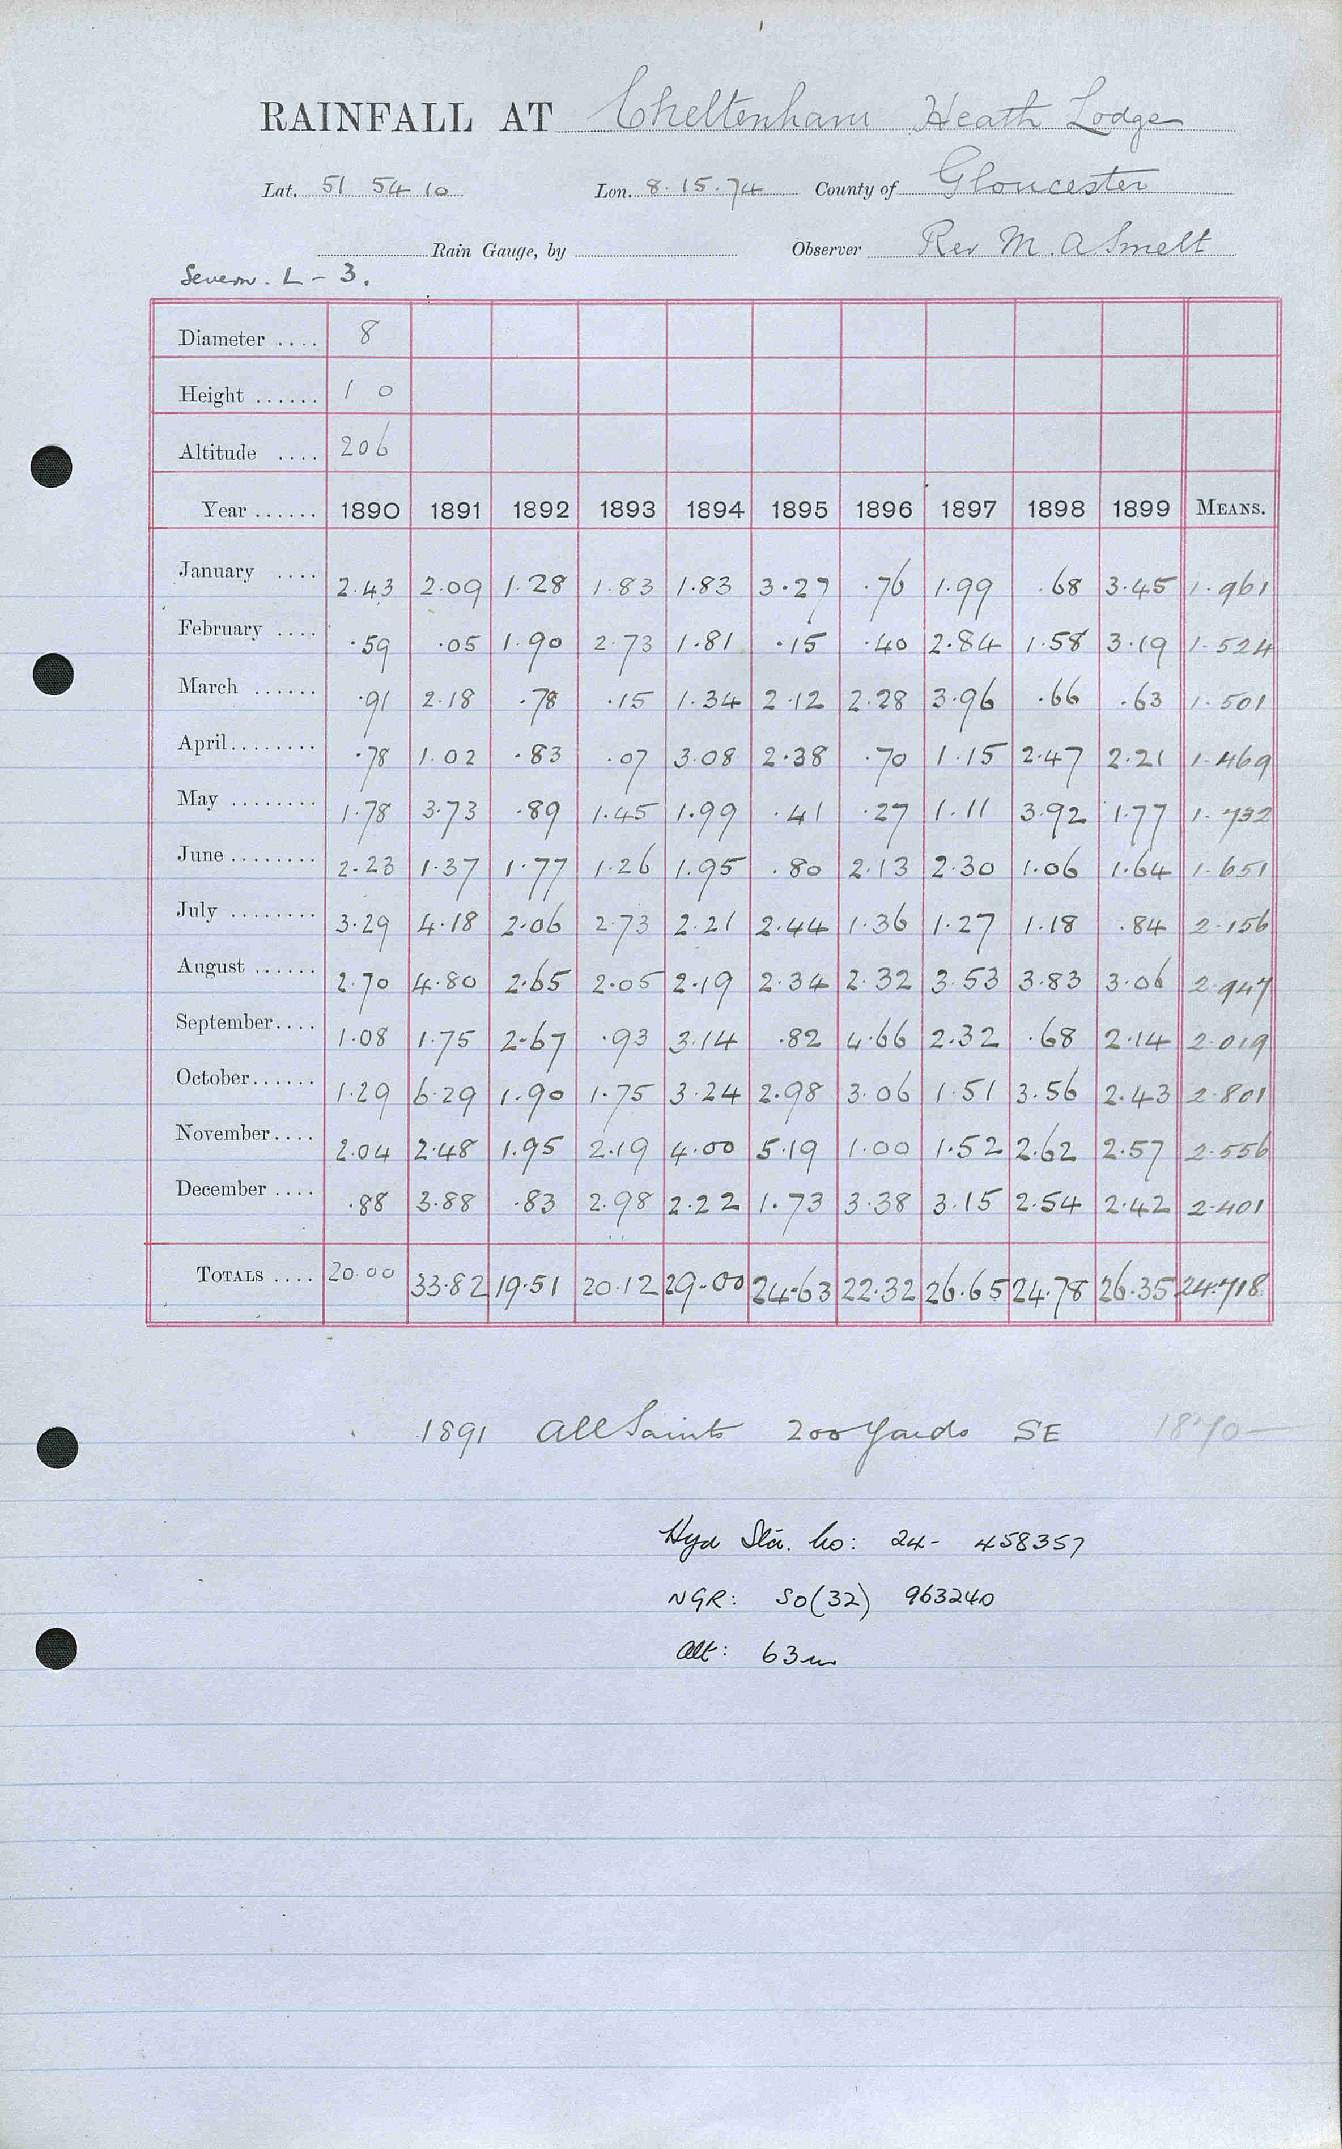 RAINFALL AT Cheltenham Heath Lodge
Lat. 51 54 10 Lon. 8.15.74 County of Gloucester
Rain Gauge, by Observer Rev M. A Smelt
Severn. L - 3.
Diameter .... 8
Height ...... 1 0
Altitude .... 206
Year ...... 1890 1891 1892 1893 1894 1895 1896 1897 1898 1899 MEANS.
January .... 2.43 2.09 1.28 1.83 1.83 3.27 .76 1.99 .68 3.45 1.961
February .... .59 .05 1.90 2.73 1.81 .15 .40 2.84 1.58 3.19 1.524
March ...... .91 2.18 .78 .15 1.34 2.12 2.28 3.96 .66 .63 1.501
April........ .78 1.02 .83 .07 3.08 2.38 .70 1.15 2.47 2.21 1.469
May ........ 1.78 3.73 .89 1.45 1.99 .41 .27 1.11 3.92 1.77 1.732
June ........ 2.23 1.37 1.77 1.26 1.95 .80 2.13 2.30 1.06 1.64 1.651
July ........ 3.29 4.18 2.06 2.73 2.21 2.44 1.36 1.27 1.18 .84 2.156
August ...... 2.70 4.80 2.65 2.05 2.19 2.34 2.32 3.53 3.83 3.06 2.947
September.... 1.08 1.75 2.67 .93 3.14 .82 4.66 2.32 .68 2.14 2.019
October...... 1.29 6.29 1.90 1.75 3.24 2.98 3.06 1.51 3.56 2.43 2.801
November.... 2.04 2.48 1.95 2.19 4.00 5.19 1.00 1.52 2.62 2.57 2.556
December .... .88 3.88 .83 2.98 2.22 1.73 3.38 3.15 2.54 2.42 2.401
TOTALS .... 20.00 33.82 19.51 20.12 29.00 24.63 22.32 26.65 24.78 26.35 24.718
1891 All Saints 200 Yards SE 1870-
Hyd Sta. No: 24- 458357
NGR: SO(32) 963240
Alt: 63m